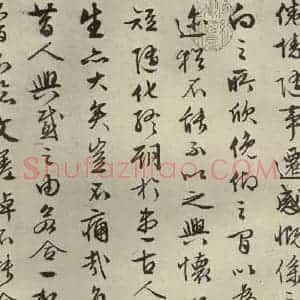 倦情隨事遷感慨係
向之所欣俛仰之間以為
迹猶不能不以之興懷
短隨化終期於盡古人
生亦大矣豈不痛哉每
昔人興感之由若合一
不臨文嗟悼不能
Shufaziliao.com